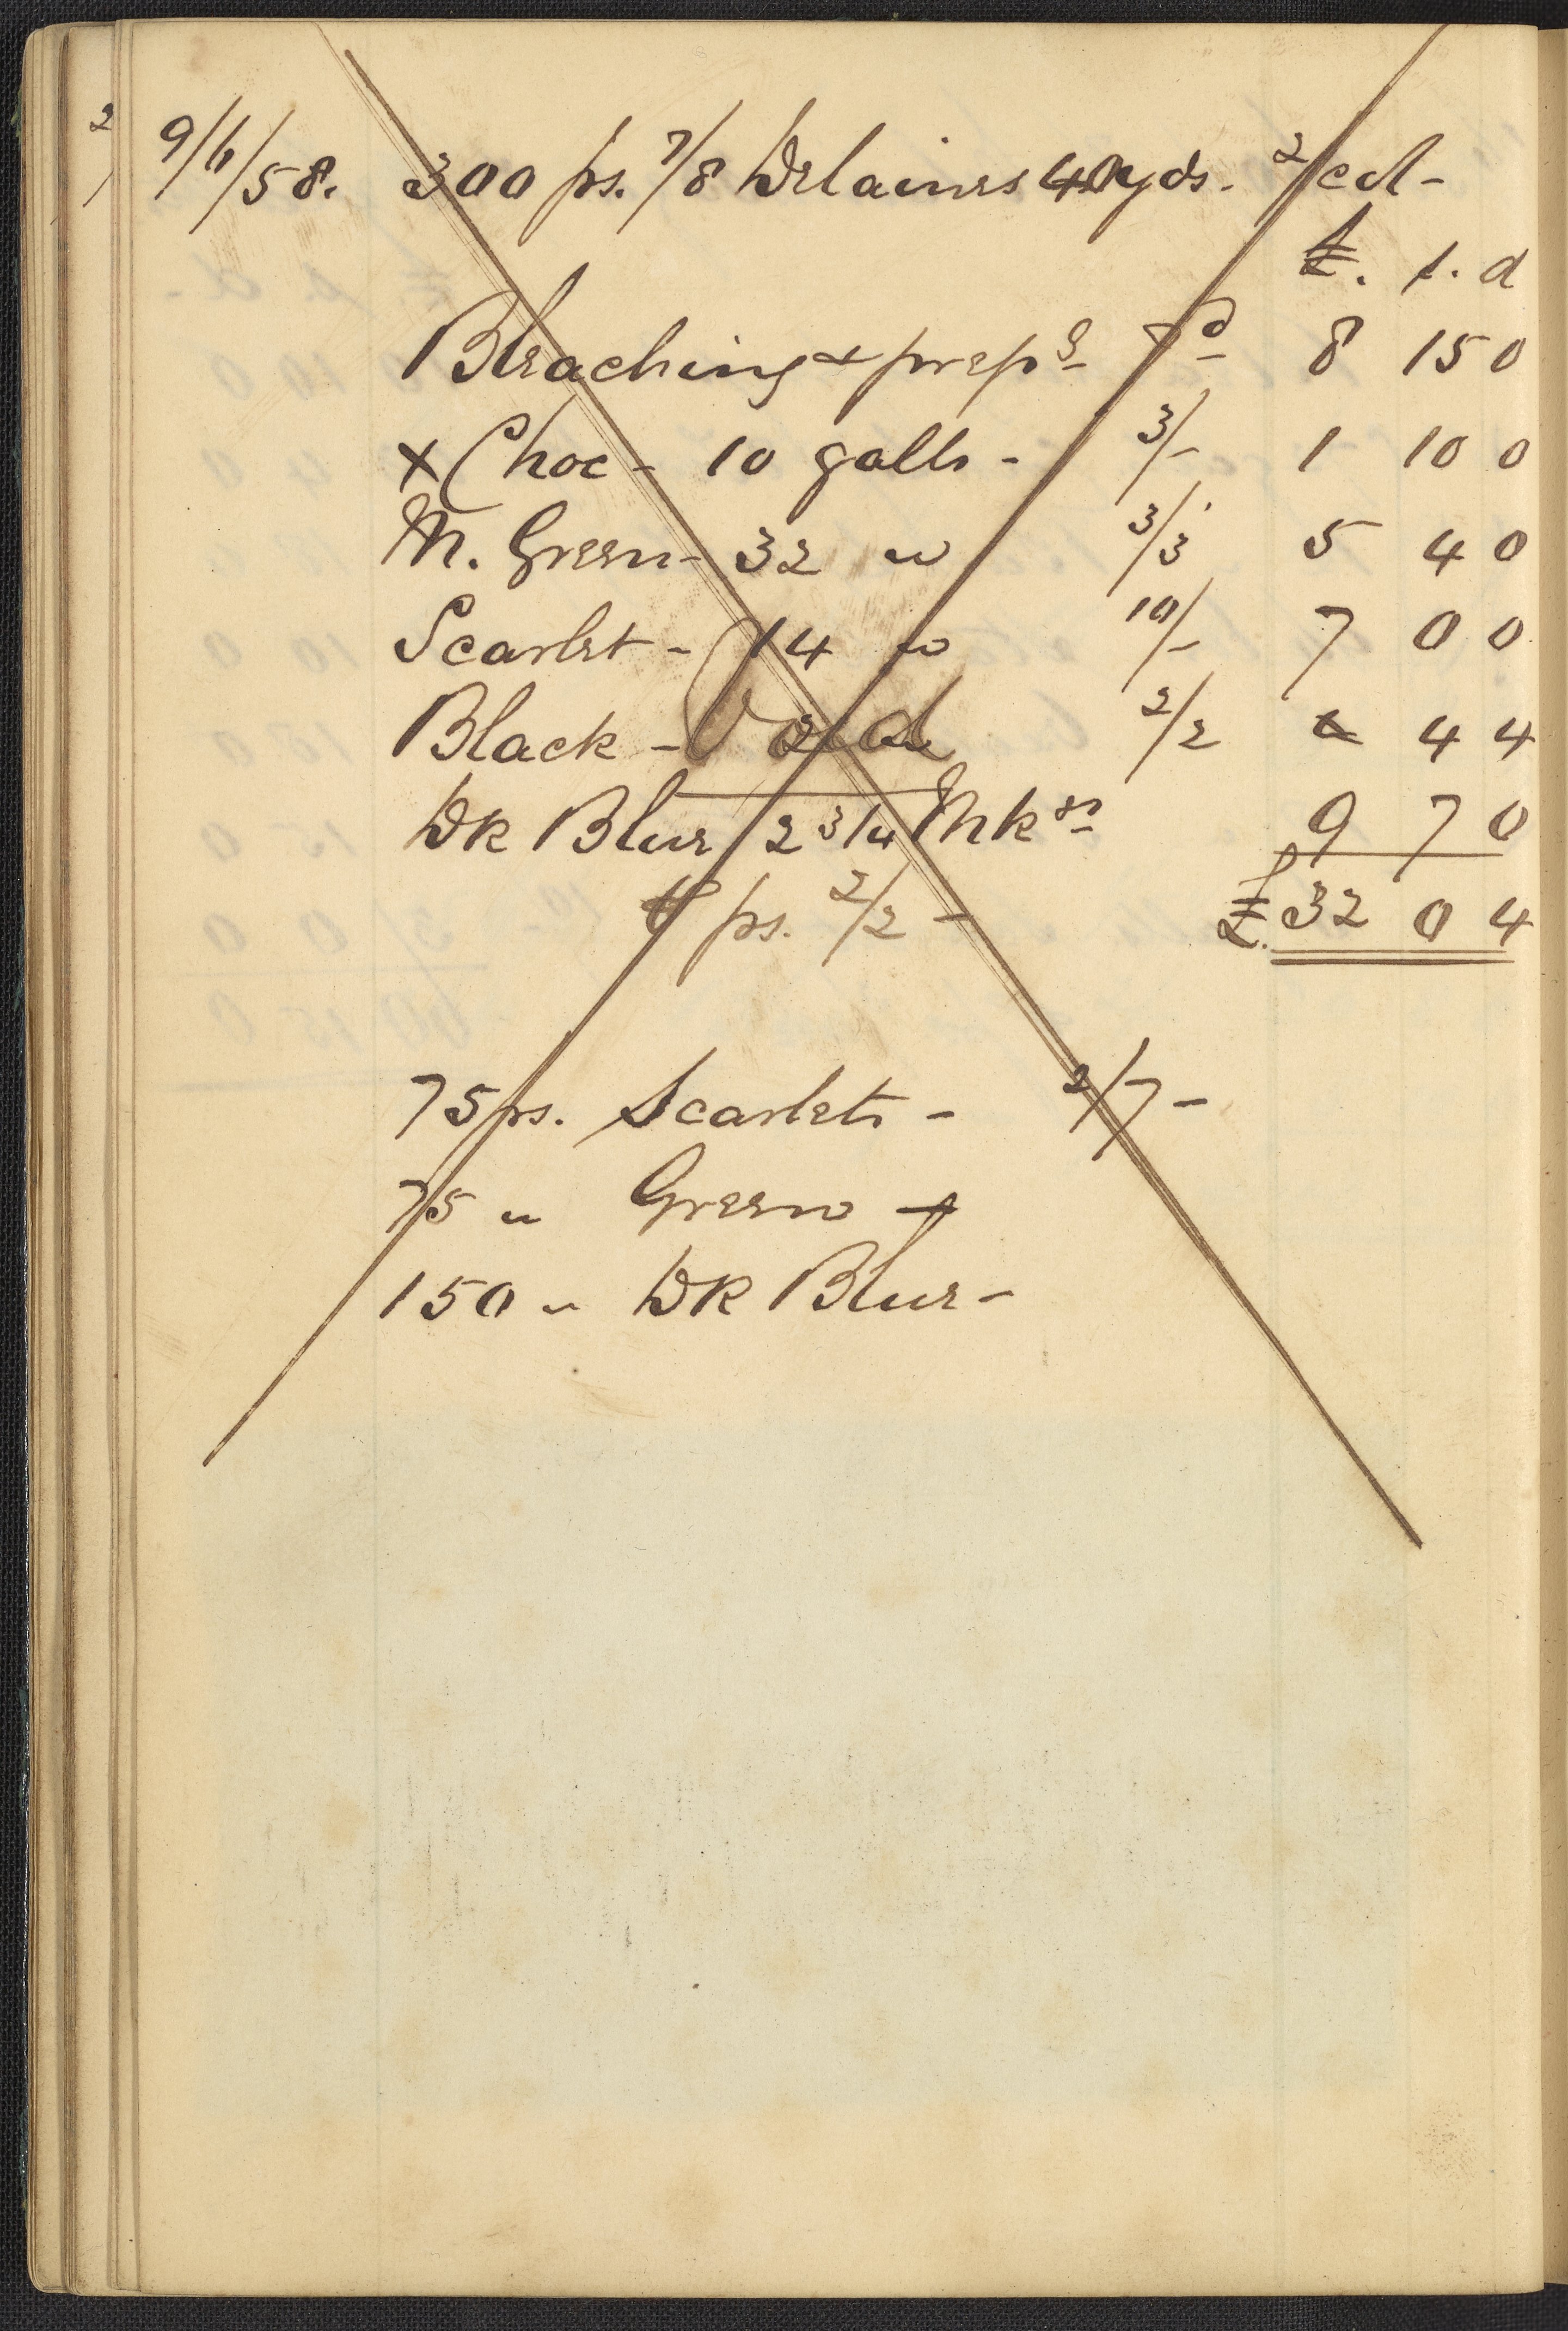 9/6/58. 300 ps. 7/8 Delaines 40 yds. 2/cd -
£. s. d
Bleaching & prepg 7d 8 15 0
x Choc - 10 galls - 3/- 1 10 0
M. Green - 32 " 3/3 5 4 0
Scarlet - 14 " 10/- 7 0 0
Black - 2 " 2/2 " 4 4
Void
Dk Blue 2 3/4 Mksn 9 7 0
£. 32 0 4
ps. 2/2 -
75 ps. Scarlets - 2/7 -
75 " Green
150 " Dk Blue -